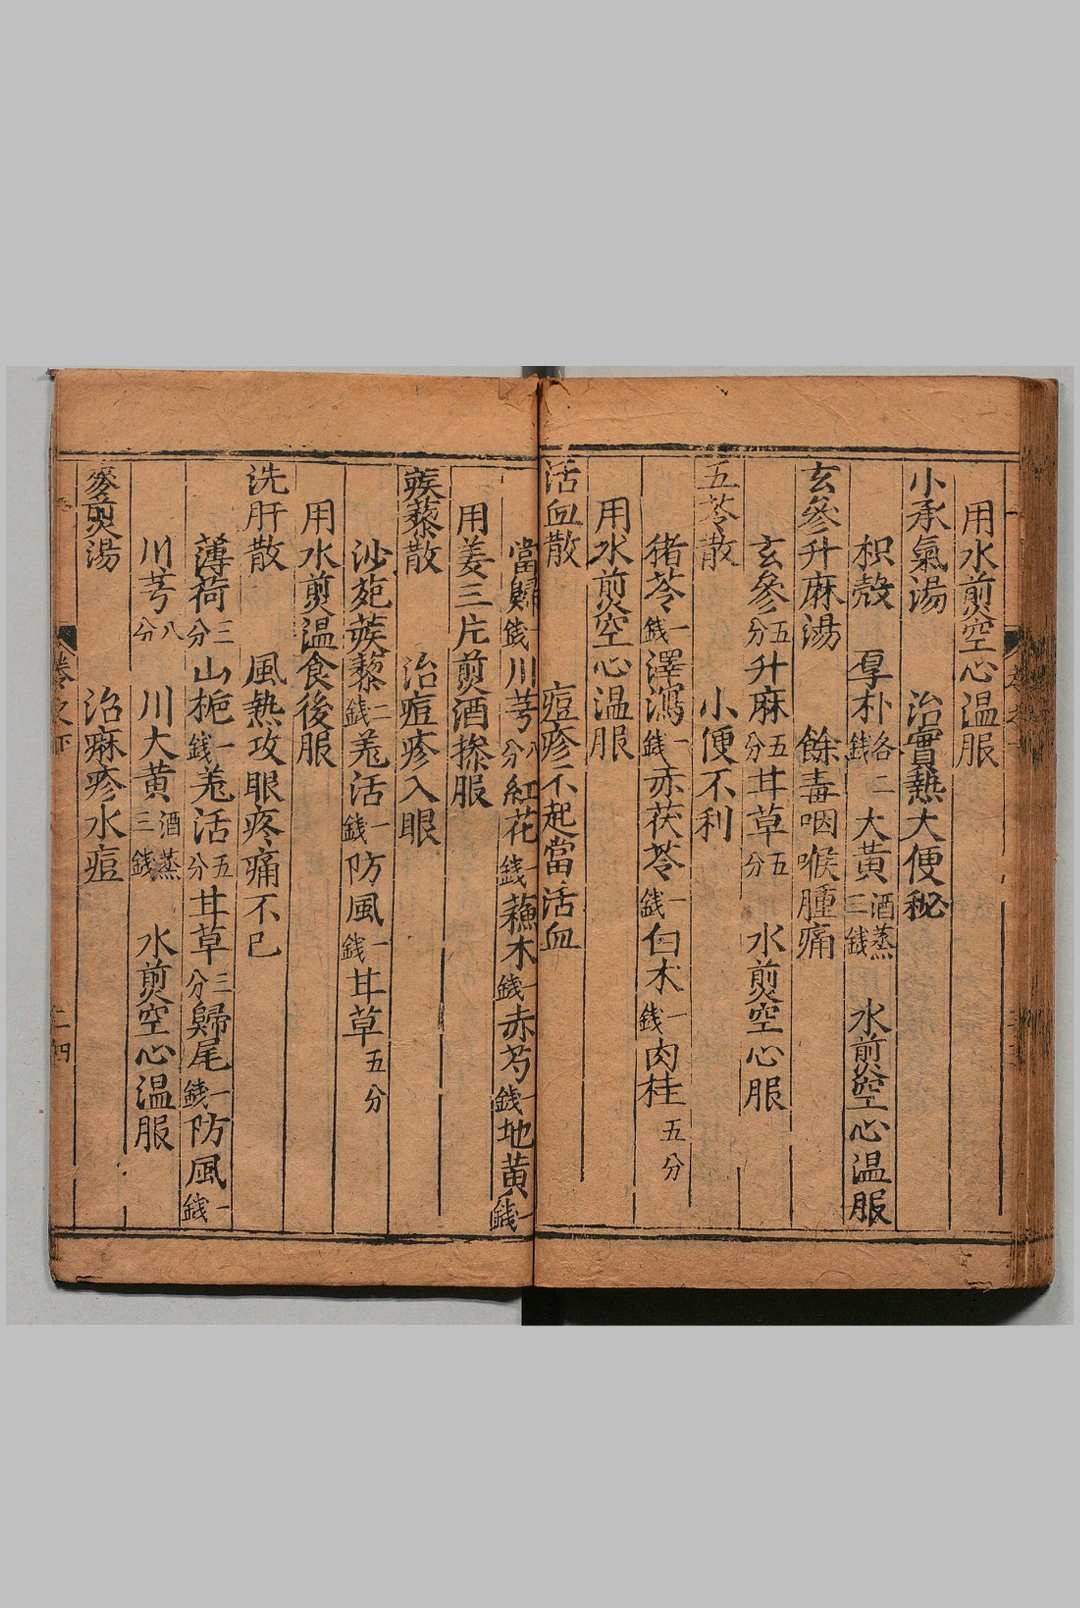 用水煎空心温服
小承氣湯　治實熱大便秘
枳殻　厚朴各二錢　大黃酒蒸三錢　水煎空心温服
玄參升麻湯　餘毒咽喉腫痛
玄參五分升麻五分甘草五分　水煎空心服
五苓散　小便不利
猪苓一錢澤瀉一錢赤茯苓一錢白朮一錢肉桂五分
用水煎空心温服
活血散　痘疹不起當活血
當歸一錢川芎八分紅花一錢蘓木一錢赤芍一錢地黃一錢
用姜三片煎酒摻服
蒺藜散　治痘疹入眼
沙苑蒺藜二錢羗活一錢防風一錢甘草五分
用水煎温食後服
洗肝散　風熱攻眼疼痛不已
薄荷三分山梔一錢羗活五分甘草三分歸尾一錢防風一錢
川芎八分　川大黃酒蒸三錢　水煎空心温服
麥煎湯　治痳疹水痘
卷之下　二四